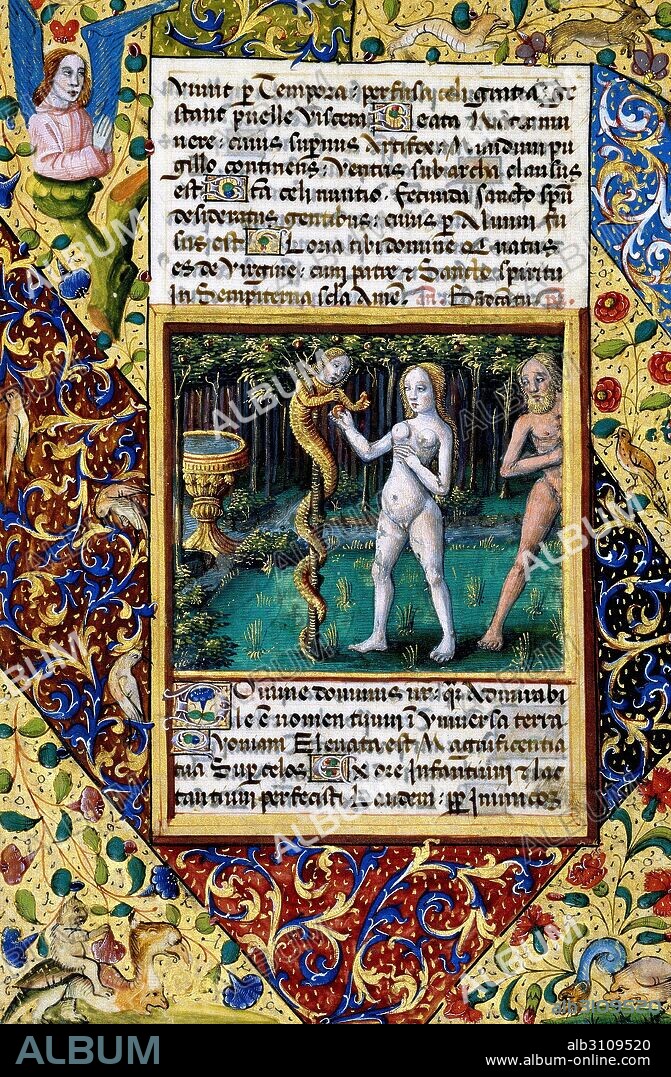 vivit p Tempora: perfusa celi gratia: ge
stant puelle Viscera Beata Mater mu
nere: cuius supernus Artifex: Mundum pu
gillo continens: Ventris sub archa clausus
est Bta celi nuntio: fecunda sancto spiri
desideratus gentibus: cuius p Alvum fu
sus est Gloria tibi domine Q natus
es de Virgine: cum patre & Sancto spiritu
In Sempiterna secla Amē.
Domine dominus nr: qm Admirabi
le ē nomen tuum ī Vniversa terra
Qvoniam Elevata est Magnificentia
tua Super celos Ex ore Infantium & lac
tantium perfecisti Laudem: pp Inimicos
ALBUM
alb3109520
www.album-online.com